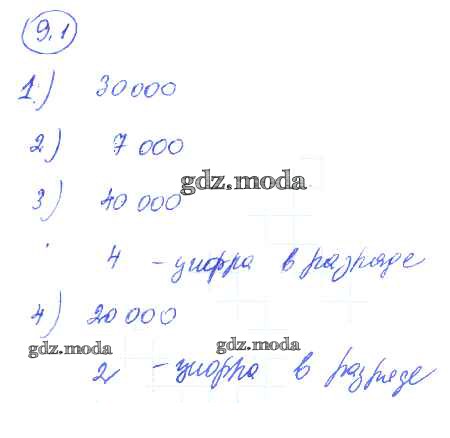 9.1
1) 30000
2) 7 000
gdz.moda
3) 40 000
4 - цифра в разряде
4) 20 000
gdz.moda gdz.moda
2 - цифра в разряде